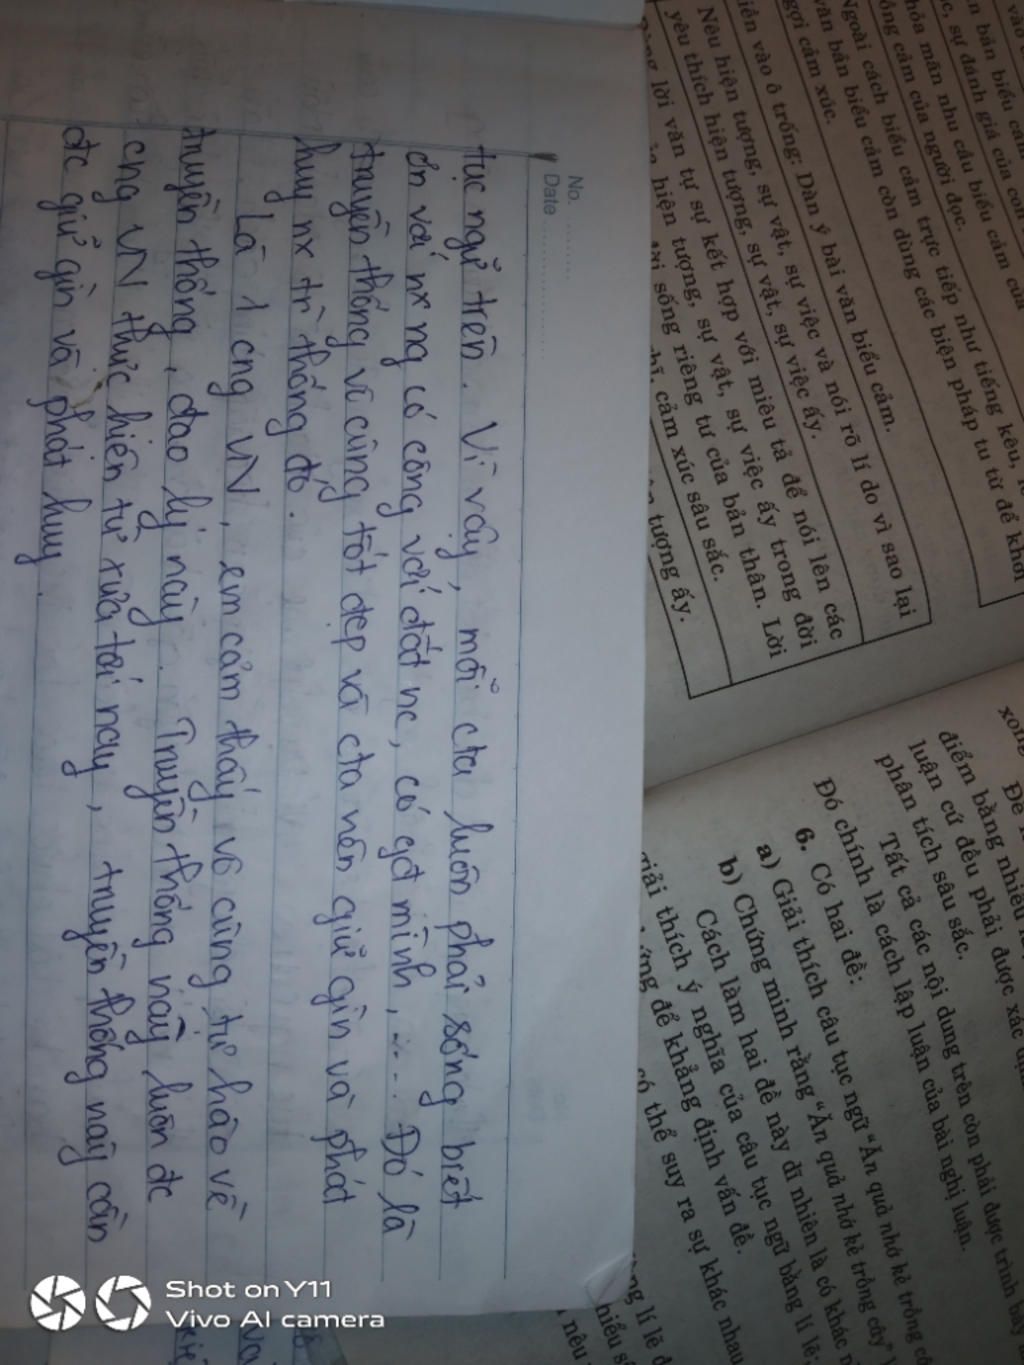 No. ........
Date ................
tục ngữ trên. Vì vậy, mỗi cta luôn phải sống biết
ơn với nx ng có công với đất nc, có gđ mình, .... Đó là
truyền thống vô cùng tốt đẹp và cta nên giữ gìn và phát
huy nx tr thống đó.
Là 1 cng VN, em cảm thấy vô cùng tự hào về
truyền thống, đạo lý này. Truyền thống này luôn đc
cng VN thực hiện từ xưa tới nay, truyền thống này cần
đc giữ gìn và phát huy.
vào
n bản biểu cảm
c, sự đánh giá của con
hỏa mãn nhu cầu biểu cảm của
ồng cảm của người đọc.
Ngoài cách biểu cảm trực tiếp như tiếng kêu,
văn bản biểu cảm còn dùng các biện pháp tu từ để khơi
gợi cảm xúc.
iền vào ô trống: Dàn ý bài văn biểu cảm.
Nêu hiện tượng, sự vật, sự việc và nói rõ lí do vì sao lại
yêu thích hiện tượng, sự vật, sự việc ấy.
lời văn tự sự kết hợp với miêu tả để nói lên các
hiện tượng, sự vật, sự việc ấy trong đời
đời sống riêng tư của bản thân. Lời
cảm xúc sâu sắc.
tượng ấy.
xong
Đề
điểm bằng nhiều
luận cứ đều phải được xác
phân tích sâu sắc.
Tất cả các nội dung trên còn phải được trình bày
Đó chính là cách lập luận của bài nghị luận.
6. Có hai đề:
a) Giải thích câu tục ngữ "Ăn quả nhớ kẻ trồng
b) Chứng minh rằng "Ăn quả nhớ kẻ trồng cây"
Cách làm hai đề này dĩ nhiên là có khác
giải thích ý nghĩa của câu tục ngữ bằng lí lẽ
để khẳng định vấn đề.
có thể suy ra sự khác nhau
lí lẽ
hiểu
nêu
Shot on Y11
Vivo AI camera